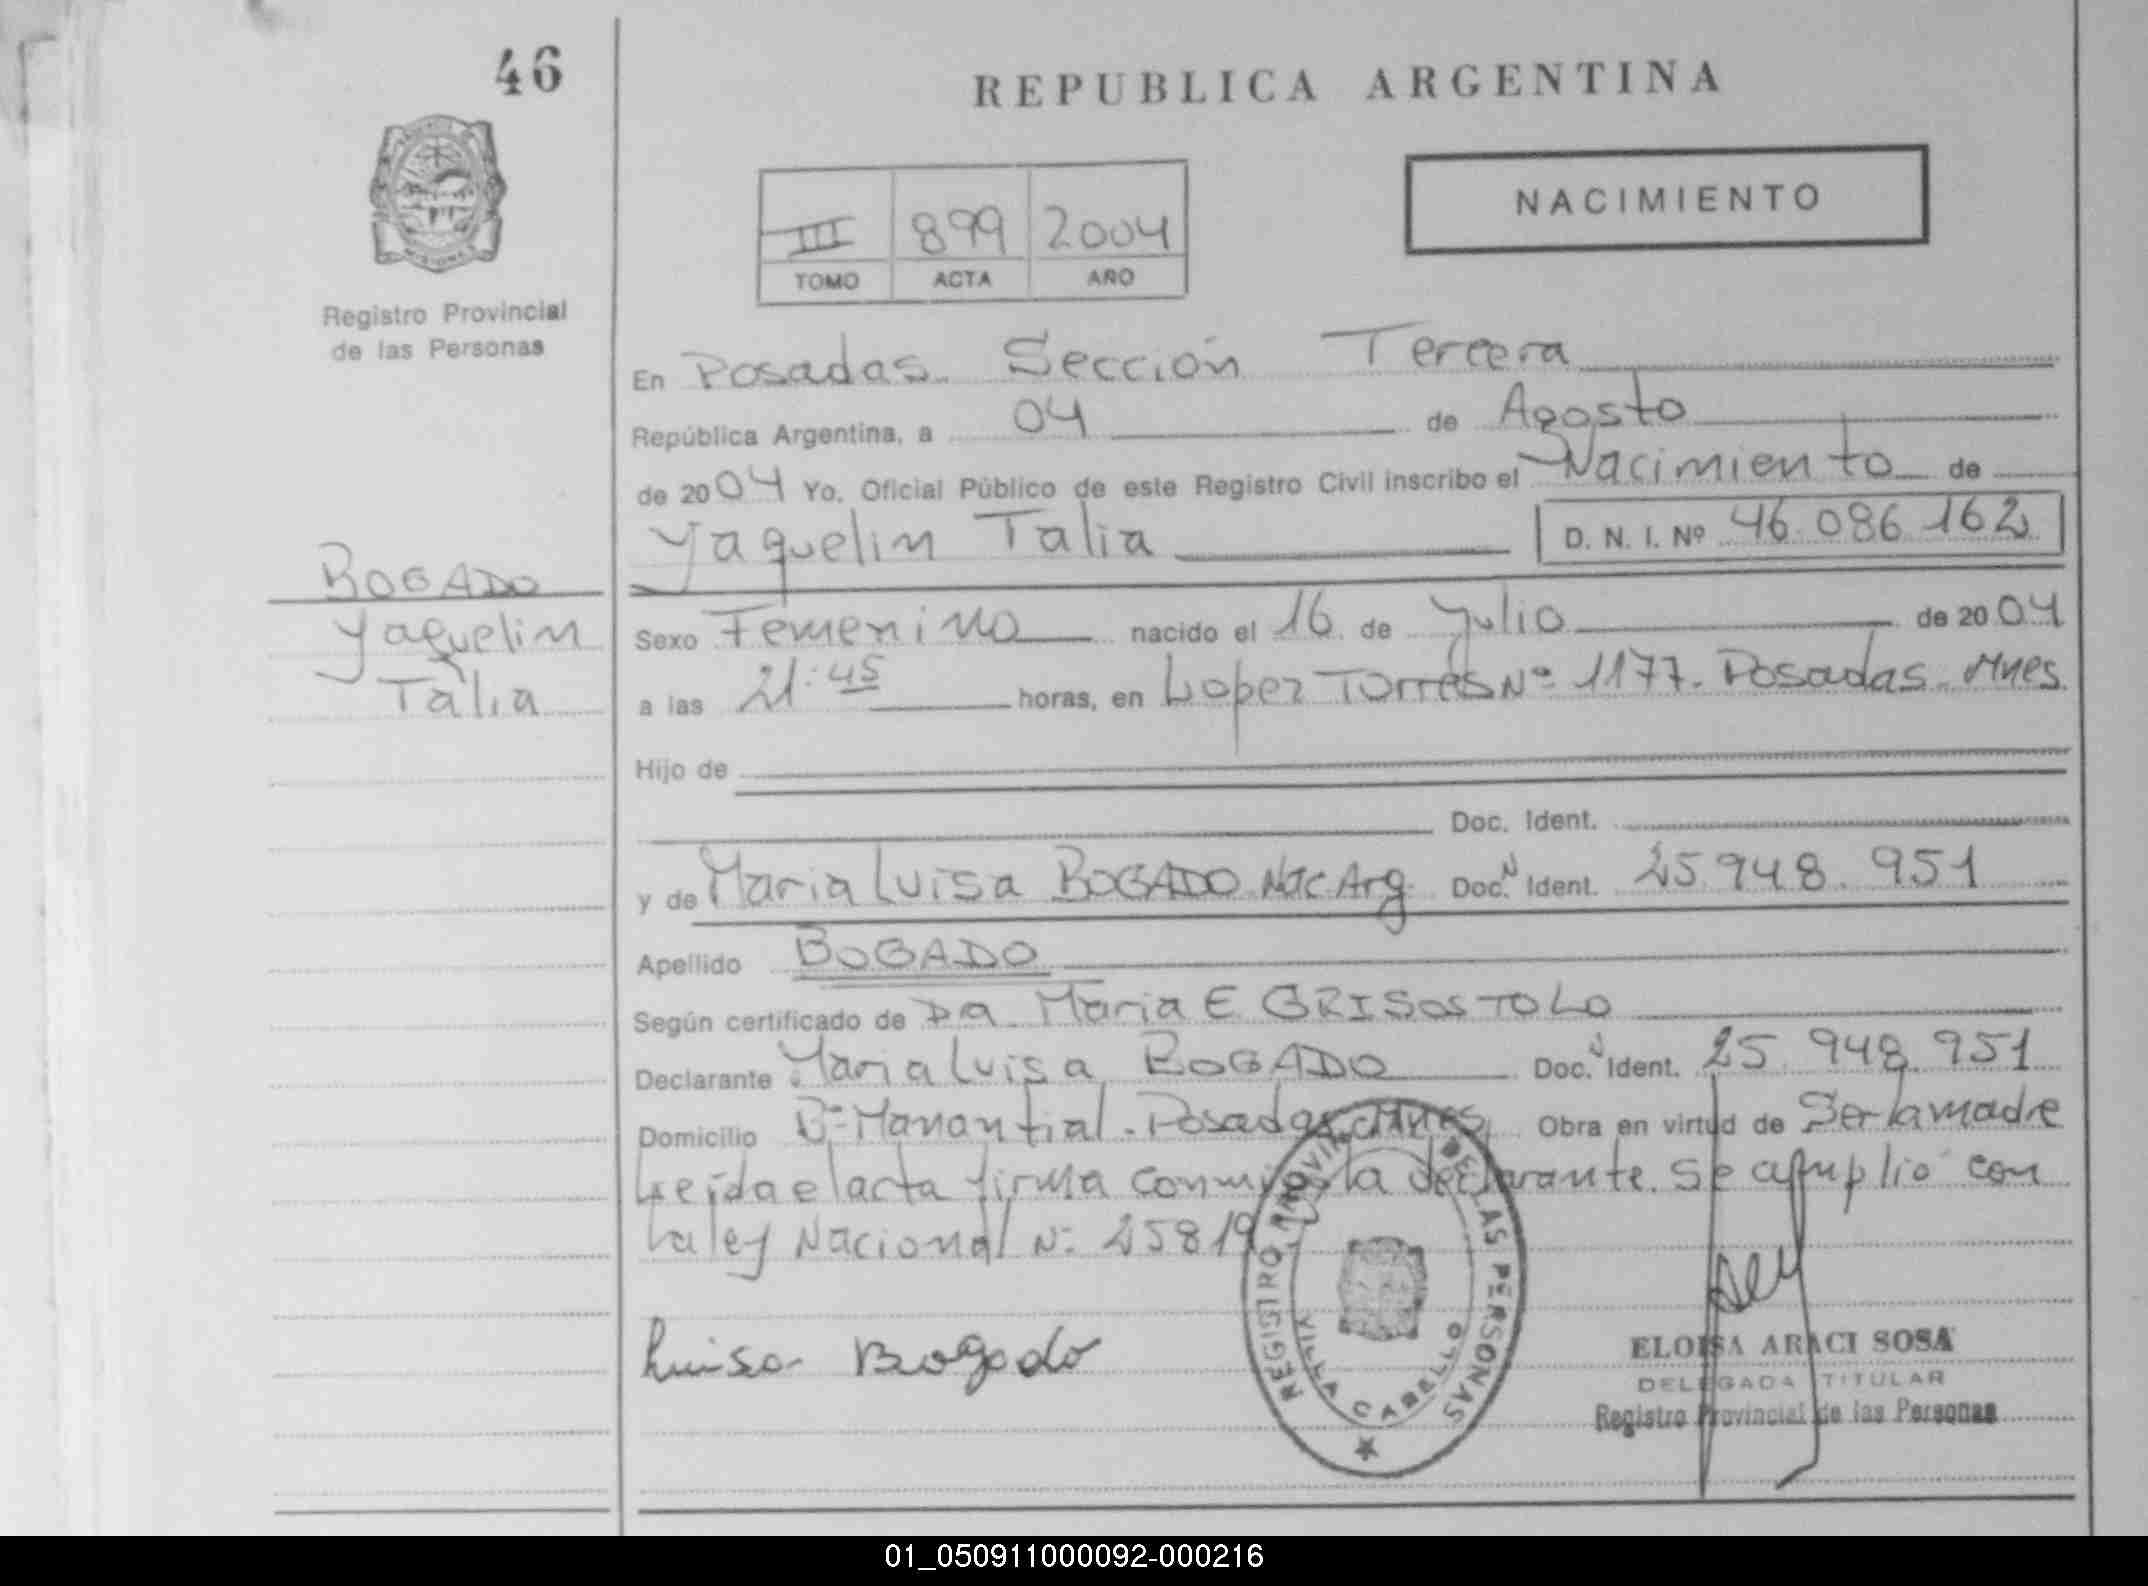 46
REPUBLICA ARGENTINA
NACIMIENTO
III 899 2004
TOMO ACTA AÑO
Registro Provincial
de las Personas
En Posadas Sección Tercera
República Argentina, a 04 de Agosto
de 2004 Yo, Oficial Público de este Registro Civil inscribo el Nacimiento de
Yaquelin Talia D. N. I. Nº 46.086.162
BOGADO
Yaquelin
Talia
Sexo Femenino nacido el 16 de Julio de 2004
a las 21:45 horas, en Lopez Torres Nº 1177. Posadas. Mnes
Hijo de
Doc. Ident.
y de Maria Luisa BOGADO Nac Arg. Doc. N Ident. 25.948.951
Apellido BOGADO
Según certificado de Dra Maria E GRISOSTOLO
Declarante Maria Luisa BOGADO Doc. N Ident. 25.948.951
Domicilio Bº Manantial. Posadas Mnes Obra en virtud de Ser la madre
Leída el acta firma conmigo la declarante. Se cumplio con
La ley Nacional Nº 25819
Luisa Bogado
REGISTRO PROVINCIAL DE LAS PERSONAS
VILLA CABELLO
ELOISA ARACI SOSA
DELEGADA TITULAR
Registro Provincial de las Personas
01_050911000092-000216